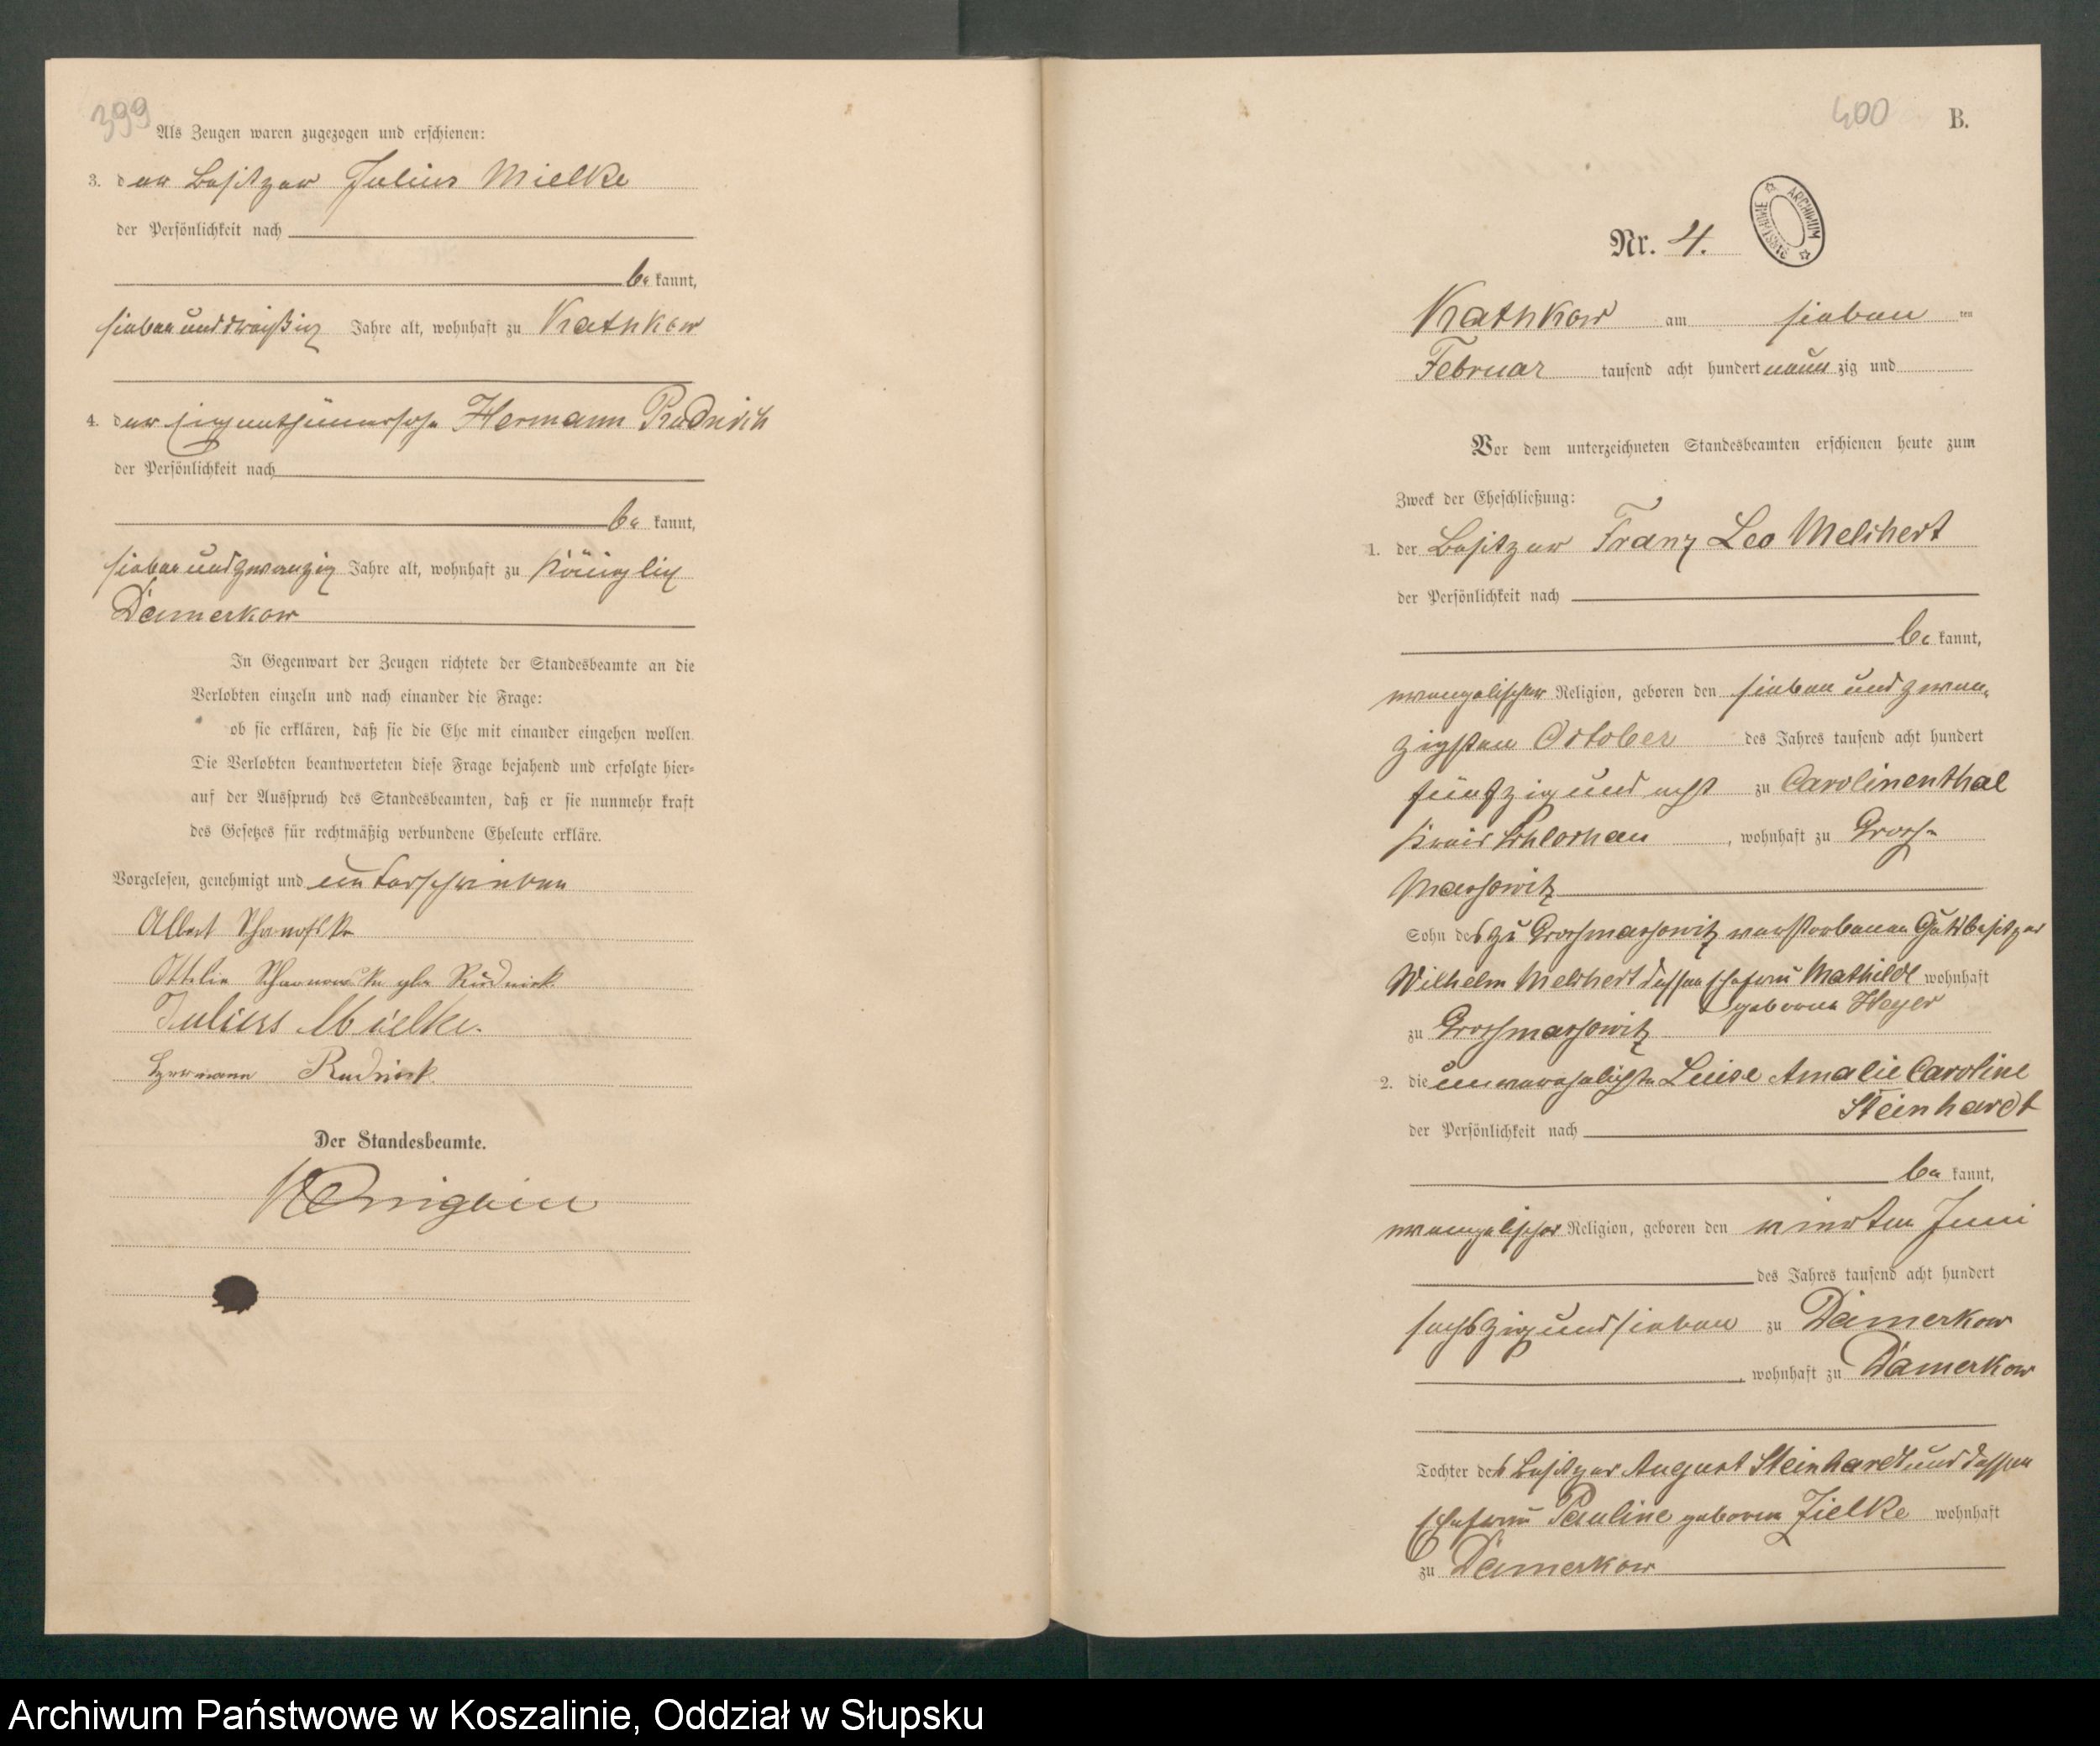 399
Als Zeugen waren zugezogen und erschienen:
3. der Besitzer Julius Mielke
der Persönlichkeit nach
be kannt,
sieben und dreißig Jahre alt, wohnhaft zu Kathkow
4. der Eigenthümersohn Hermann Rudnick
der Persönlichkeit nach
be kannt,
sieben und zwanzig Jahre alt, wohnhaft zu Königlich
Damerkow
In Gegenwart der Zeugen richtete der Standesbeamte an die
Verlobten einzeln und nach einander die Frage:
ob sie erklären, daß sie die Ehe mit einander eingehen wollen.
Die Verlobten beantworteten diese Frage bejahend und erfolgte hier-
auf der Ausspruch des Standesbeamten, daß er sie nunmehr kraft
des Gesetzes für rechtmäßig verbundene Eheleute erkläre.
Vorgelesen, genehmigt und unterschrieben
Albert
Ottilie geb Rudnick
Julius Mielke.
Hermann Rudnick.
Der Standesbeamte.
400
B.
ARCHIWUM PAŃSTWOWE
Nr. 4.
Kathkow am sieben ten
Februar tausend acht hundert neun zig und
Vor dem unterzeichneten Standesbeamten erschienen heute zum
Zweck der Eheschließung:
1. der Besitzer Franz Leo Melchert
der Persönlichkeit nach
be kannt,
evangelischer Religion, geboren den sieben und zwan-
zigsten October des Jahres tausend acht hundert
fünfzig und acht zu Carolinenthal
Kreis Schlochau, wohnhaft zu Gross-
Massowitz
Sohn des zu Grossmassowitz verstorbenen Gutsbesitzer
Wilhelm Melchert dessen Ehefrau Mathilde wohnhaft
geborene Heyer
zu Grossmassowitz
2. die unverehelichte Luise Amalie Caroline
Steinhardt
der Persönlichkeit nach
be kannt,
evangelischer Religion, geboren den vierten Juni
des Jahres tausend acht hundert
sechszig und sieben zu Damerkow
, wohnhaft zu Damerkow
Tochter des Besitzer August Steinhardt und dessen
Ehefrau Pauline geborene Zielke wohnhaft
zu Damerkow
Archiwum Państwowe w Koszalinie, Oddział w Słupsku